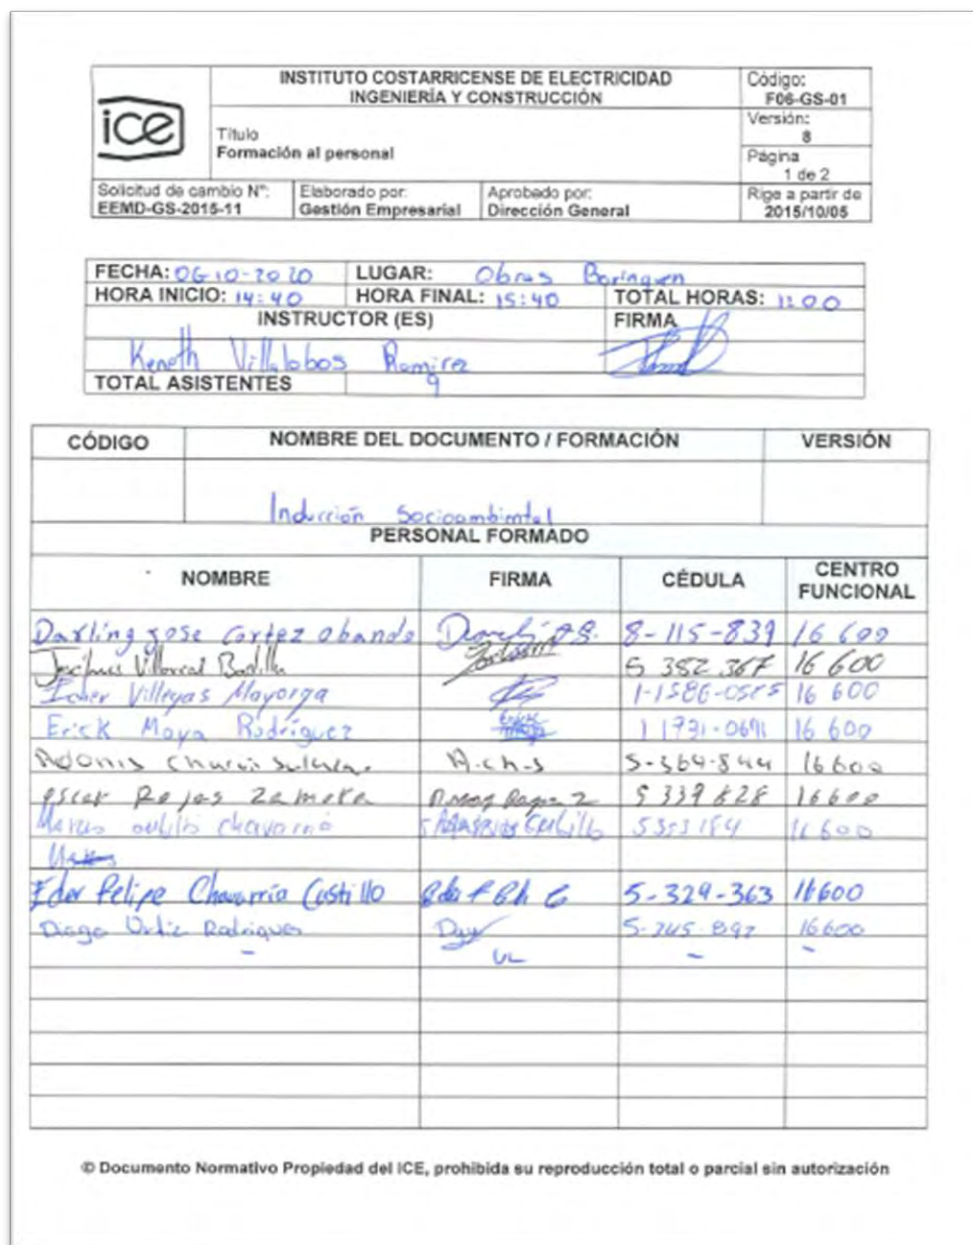 ice
INSTITUTO COSTARRICENSE DE ELECTRICIDAD
INGENIERÍA Y CONSTRUCCIÓN
Código:
F06-GS-01
Título
Formación al personal
Versión:
8
Página
1 de 2
Solicitud de cambio Nº:
EEMD-GS-2015-11
Elaborado por:
Gestión Empresarial
Aprobado por:
Dirección General
Rige a partir de
2015/10/05
FECHA: 06-10-2020 LUGAR: Obras Borinquen
HORA INICIO: 14:40 HORA FINAL: 15:40 TOTAL HORAS: 1:00
INSTRUCTOR (ES) FIRMA
Keneth Villalobos Ramirez
TOTAL ASISTENTES 9
CÓDIGO NOMBRE DEL DOCUMENTO / FORMACIÓN VERSIÓN
Inducción Socioambimtal
PERSONAL FORMADO
NOMBRE FIRMA CÉDULA CENTRO FUNCIONAL
Darling jose Cortez obando 8-115-839 16 600
Villareal Badilla 5 352 367 16 600
Villegas Mayorga 16 600
Erick Moya Rodríguez 16 600
Adonis A.ch.s 5-364-844 16600
oscar Rojas Zamora 5 339 828 16600
Chavarria 16600
Eder Felipe Chavarría Castillo 5-329-363 16600
Diego Ortiz Rodriguez 5-245-892 16600
© Documento Normativo Propiedad del ICE, prohibida su reproducción total o parcial sin autorización